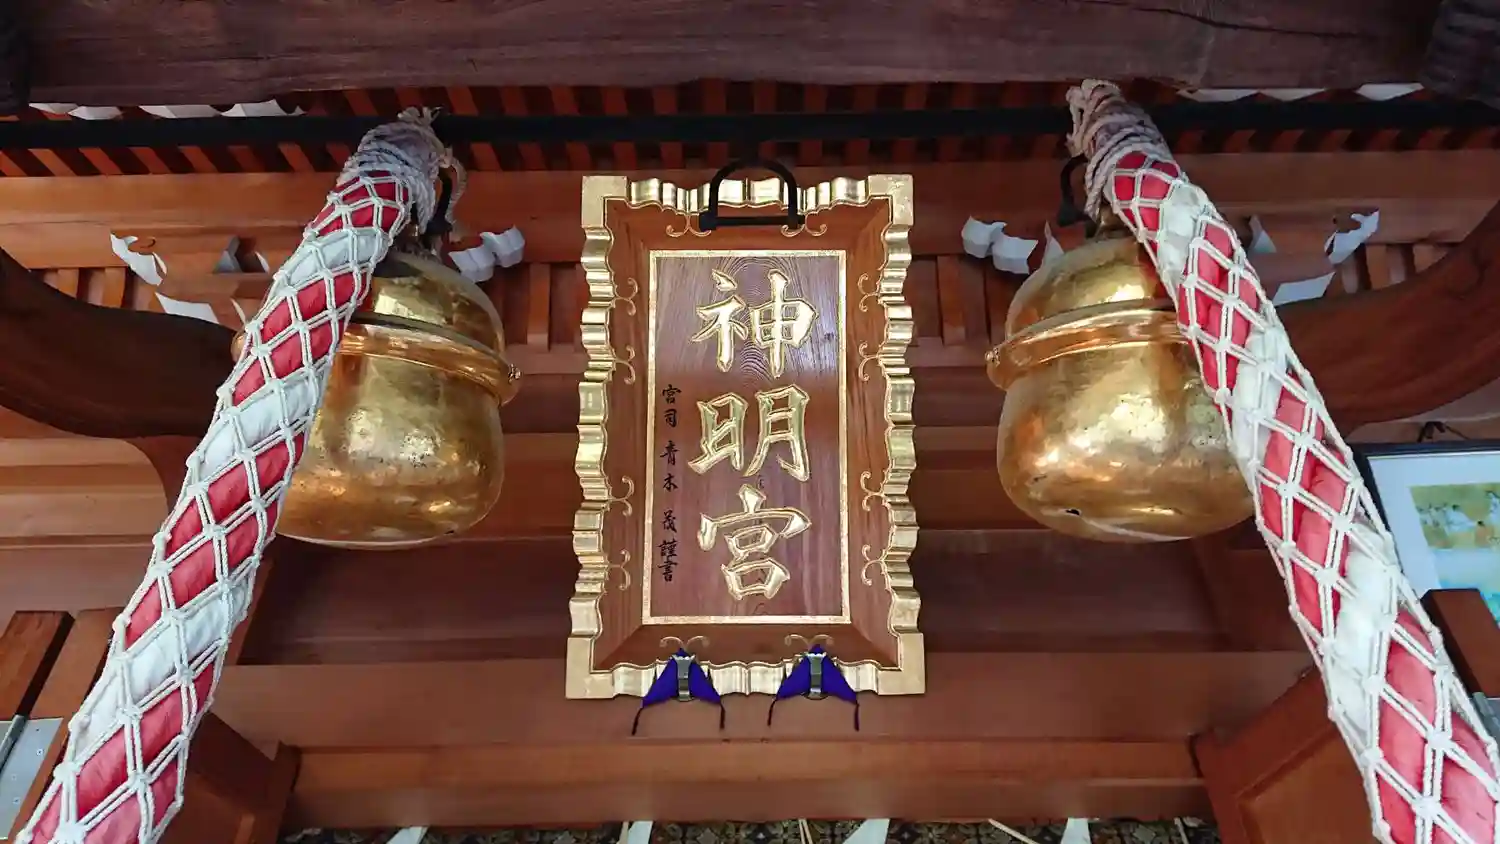 神明宮
宮司 青木 茂 謹書